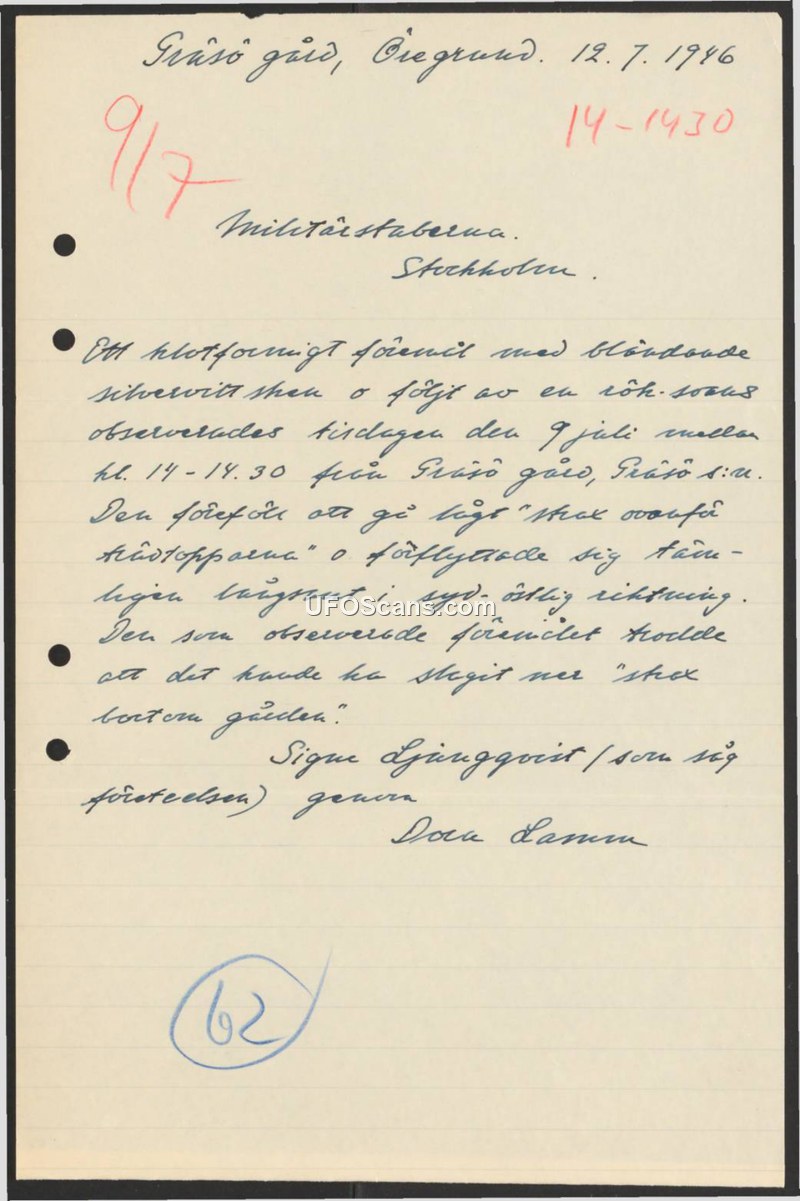 Gräsö gård, Öregrund. 12.7.1946
9/7
14-1430
Militärstaberna.
Stockholm.
Ett klotformigt föremål med bländande
silvervitt sken o följt av en rök-svans
observerades tisdagen den 9 juli mellan
kl. 14-14.30 från Gräsö gård, Gräsö s:n.
Den föreföll att gå lågt "strax ovanför
trädtopparna" o förflyttade sig täm-
ligen långsamt i syd-östlig riktning.
UFOScans.com
Den som observerade föremålet trodde
att det kunde ha slagit ner "strax
bortom gården".
Signe Ljungqvist (som såg
företeelsen) genom
Dora Lamm
62